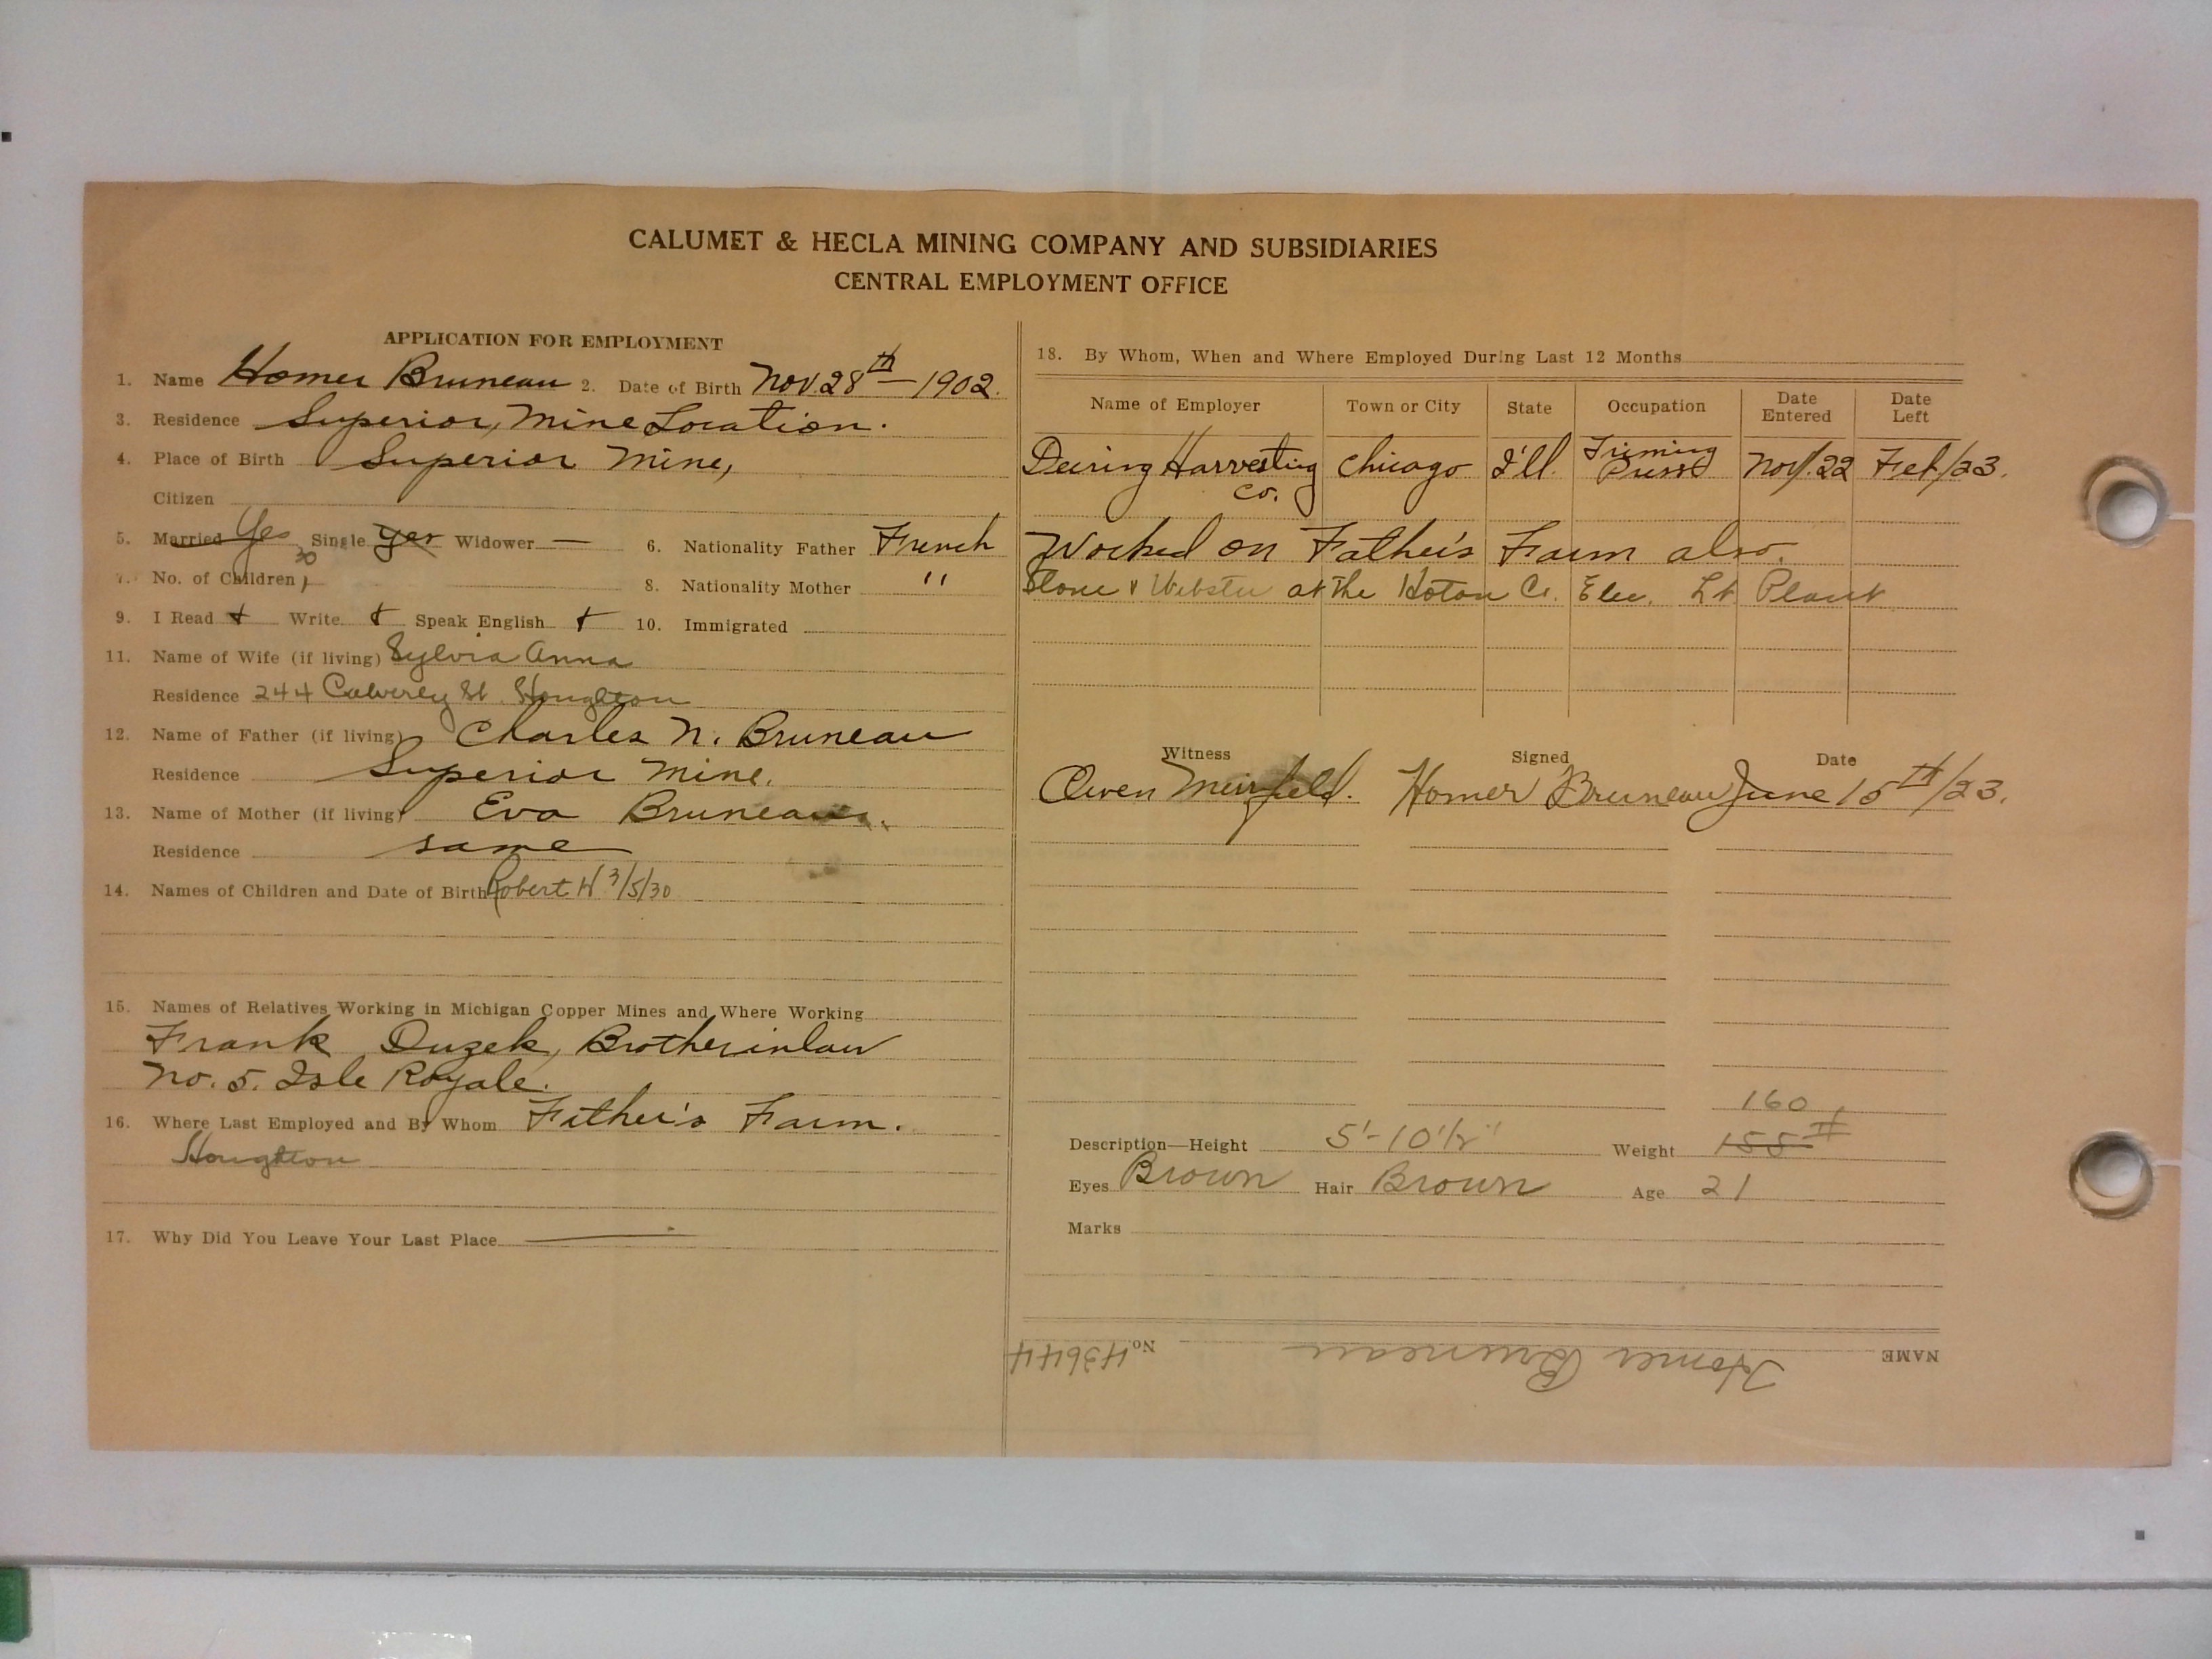 CALUMET & HECLA MINING COMPANY AND SUBSIDIARIES
CENTRAL EMPLOYMENT OFFICE
APPLICATION FOR EMPLOYMENT
1. Name Homer Bruneau 2. Date of Birth Nov. 28th - 1902.
3. Residence Superior, Mine Location.
4. Place of Birth Superior Mine,
Citizen
5. Married Yes Single Yes Widower —
6. Nationality Father French
7. No. of Children
8. Nationality Mother "
9. I Read + Write + Speak English + 10. Immigrated
11. Name of Wife (if living) Sylvia Anna
Residence 244 St. Houghton
12. Name of Father (if living) Charles N. Bruneau
Residence Superior Mine.
13. Name of Mother (if living) Eva Bruneau
Residence same
14. Names of Children and Date of Birth Robert H. 3/5/30
15. Names of Relatives Working in Michigan Copper Mines and Where Working
Frank Duzek, Brotherinlaw
No. 5. Isle Royale.
16. Where Last Employed and By Whom Father's Farm.
Houghton
17. Why Did You Leave Your Last Place —
18. By Whom, When and Where Employed During Last 12 Months
Name of Employer Town or City State Occupation Date Entered Date Left
Deering Harvesting Co. Chicago I'll. Nov/.22 Feb/23.
Worked on Father's Farm also.
Stone & Webster at the Hoton Co. Elec. Lt Plant
Witness Signed Date
Owen Homer Bruneau June 15th/23.
160
Description—Height 5'-10 1/2" Weight 155#
Eyes Brown Hair Brown Age 21
Marks
NAME Homer Bruneau No. 43644